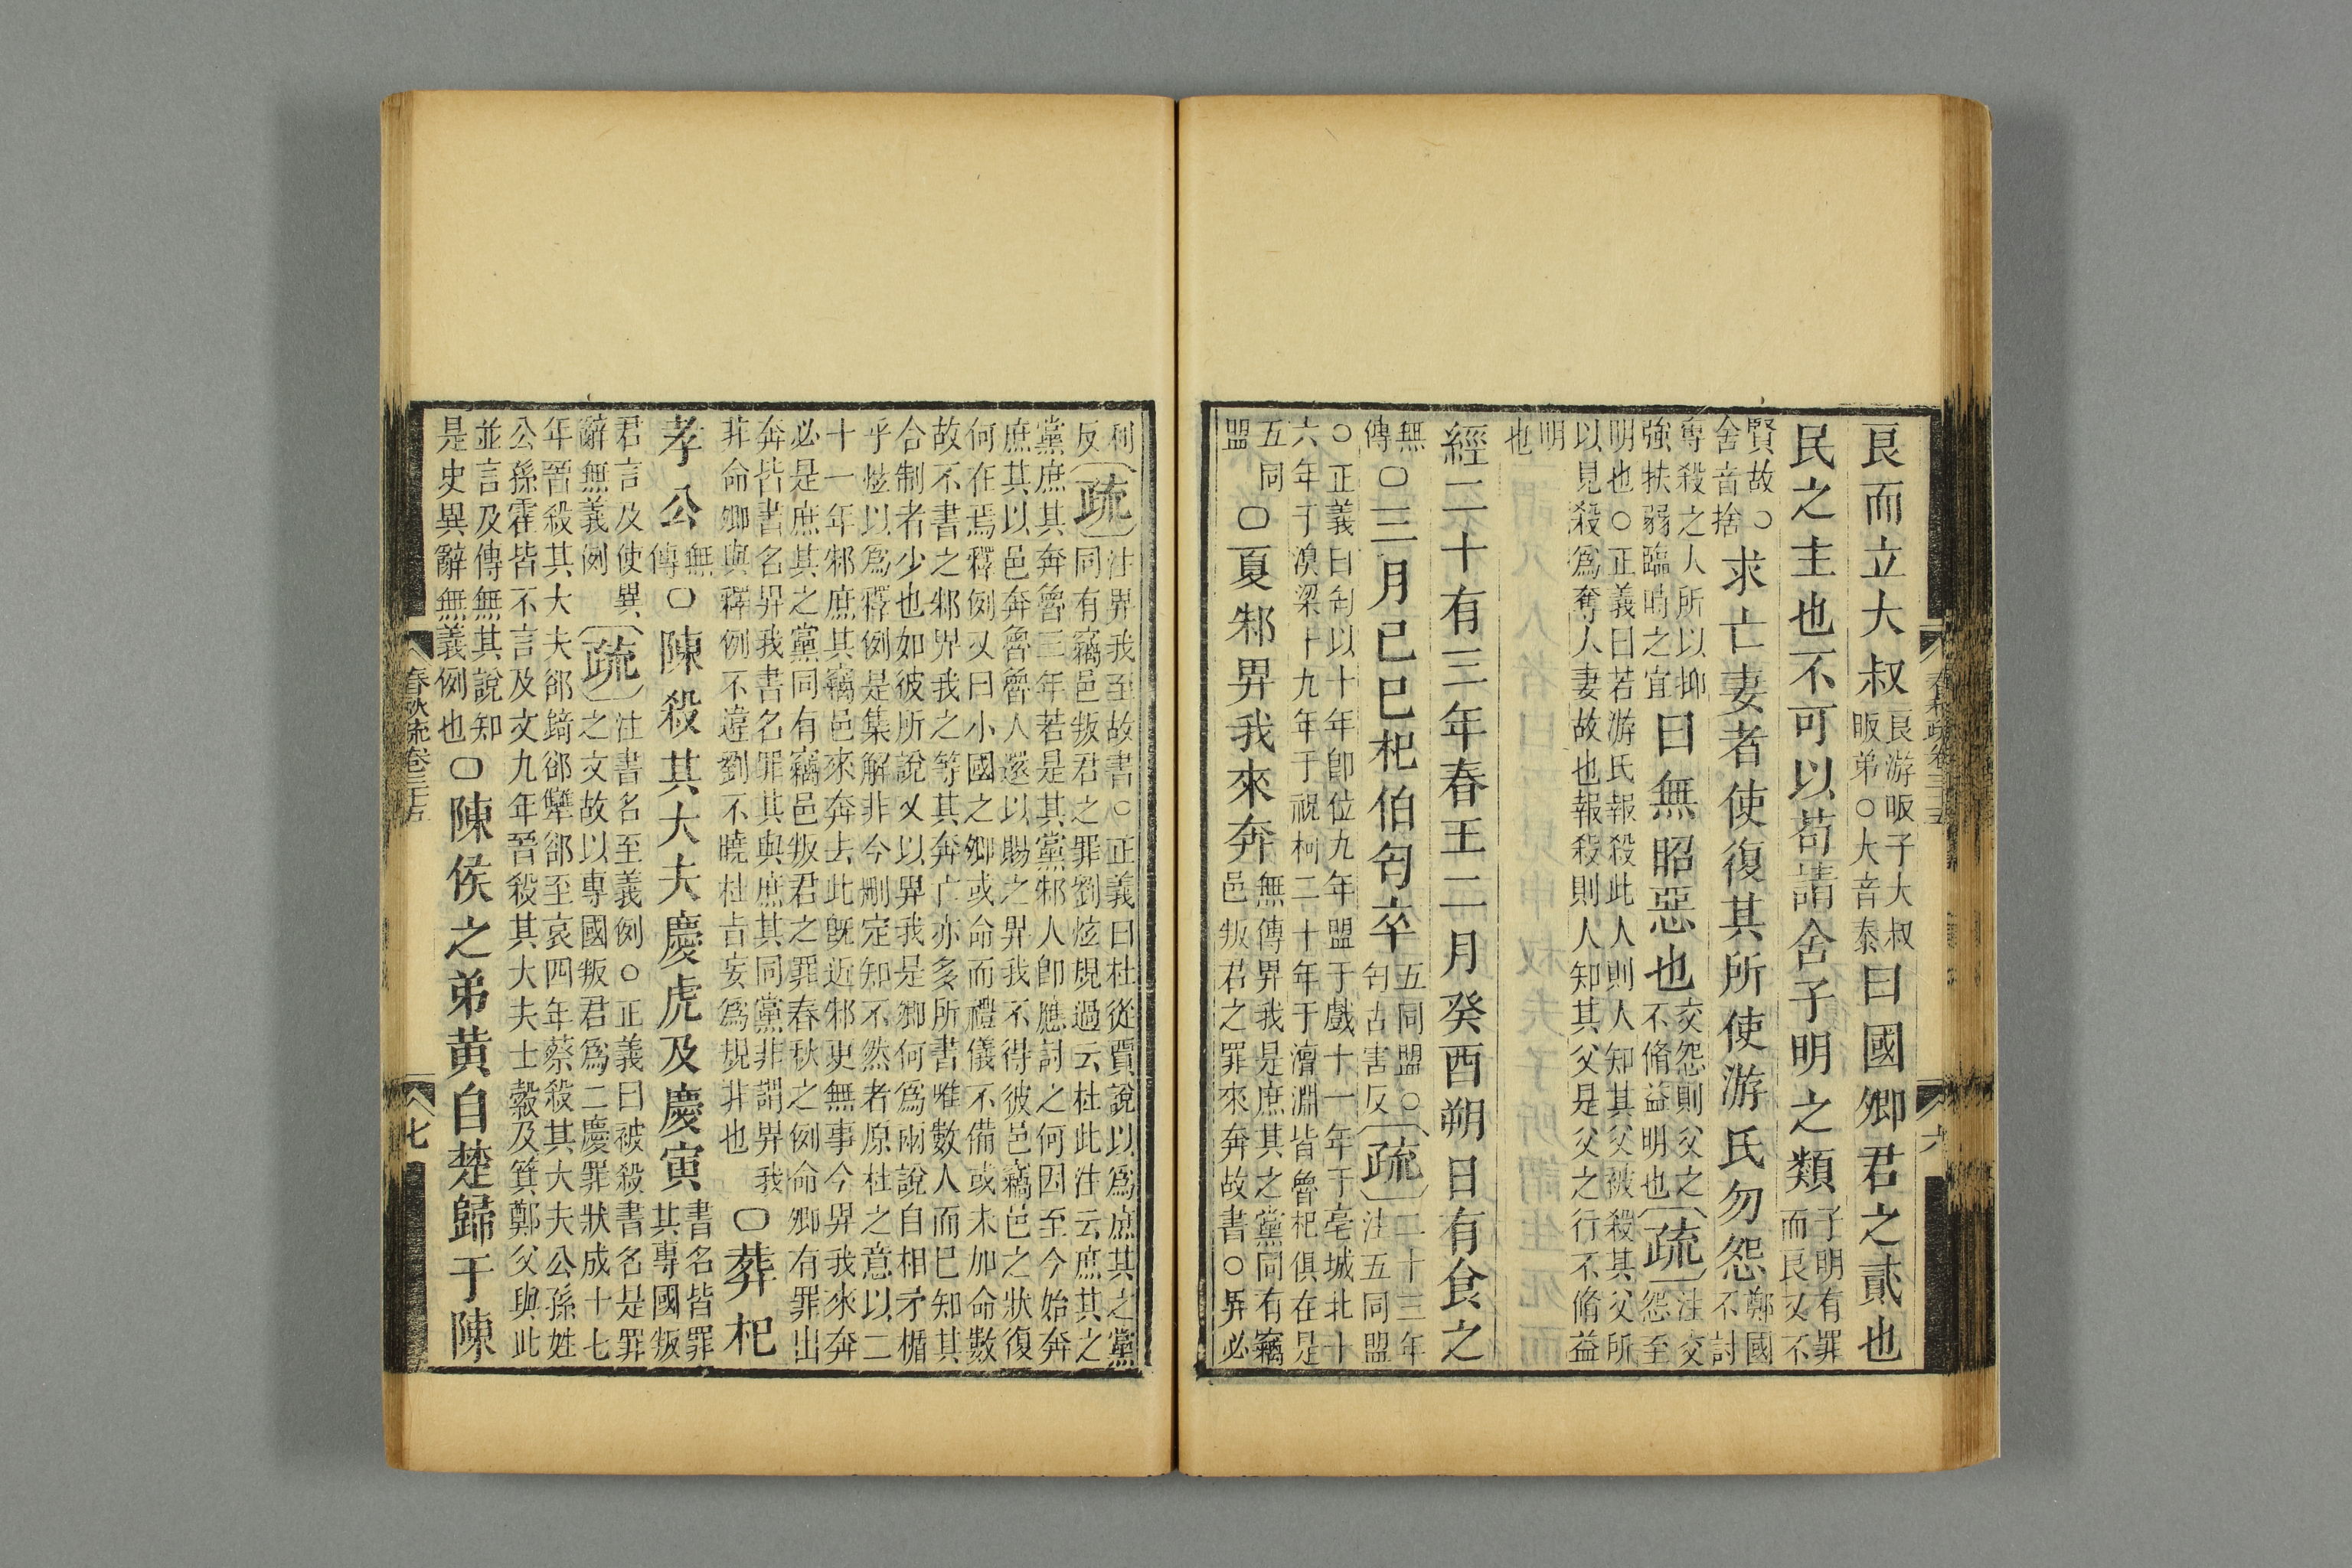 良而立大叔良游昄子大叔昄弟○大音泰曰國卿君之貳也
民之主也不可以苟請舍子明之類子明有罪而良又不
賢故○舍音捨求亡妻者使復其所使游氏勿怨鄭國不討
專殺之人所以抑強扶弱臨時之宜曰無昭惡也交怨則父之不脩益明也疏注交怨至
明也○正義曰若游氏報殺此人則人知其父被殺其父所
以見殺爲奪人妻故也報殺則人知其父是父之行不脩益
明也
經二十有三年春王二月癸酉朔日有食之
無傳○三月己巳杞伯匄卒五同盟○匄古害反疏二十三年注五同盟
○正義曰匄以十年卽位九年盟于戲十一年于亳城北十
六年于溴梁十九年于祝柯二十年于澶淵皆魯杞俱在是
五同盟○夏邾畀我來奔無傳畀我是庶其之黨同有竊邑叛君之罪來奔故書○畀必
利反疏注畀我至故書○正義曰杜從賈說以爲庶其之黨同有竊邑叛君之罪劉炫規過云杜此注云庶其之
黨庶其奔魯三年若是其黨邾人卽應討之何因至今始奔
庶其以邑奔魯魯人遂以賜之畀我不得彼邑竊邑之狀復
何在焉釋例又曰小國之卿或命而禮儀不備或未加命數
故不書之邾畀我之等其奔亡亦多所書唯數人而已知其
合制者少也如彼所說又以畀我是卿何爲兩說自相矛楯
乎炫以爲釋例是集解非今刪定知不然者原杜之意以二
十一年邾庶其竊邑來奔去此旣近邾更無事今畀我來奔
必是庶其之黨同有竊邑叛君之罪春秋之例命卿有罪出
奔皆書名畀我書名罪其與庶其同黨非謂畀我
非命卿與釋例不違劉不曉杜旨妄爲規非也○葬杞
孝公無傳○陳殺其大夫慶虎及慶寅書名皆罪其專國叛
君言及使異辭無義例疏注書名至義例○正義曰被殺書名是罪之文故以專國叛君爲二慶罪狀成十七
年晉殺其大夫郤錡郤犨郤至哀四年蔡殺其大夫公孫姓
公孫霍皆不言及文九年晉殺其大夫士縠及箕鄭父與此
並言及傳無其說知是史異辭無義例也○陳侯之弟黃自楚歸于陳
春秋疏卷三十五
六
春秋疏卷三十五
七